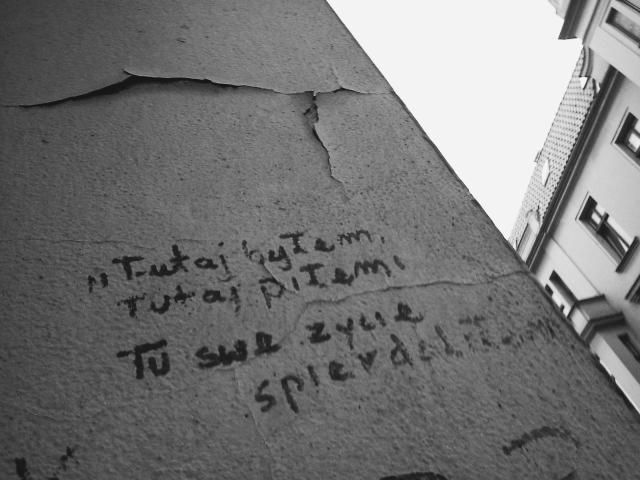 „Tutaj byłem,
Tutaj piłem,
Tu swe życie
spierdoliłem